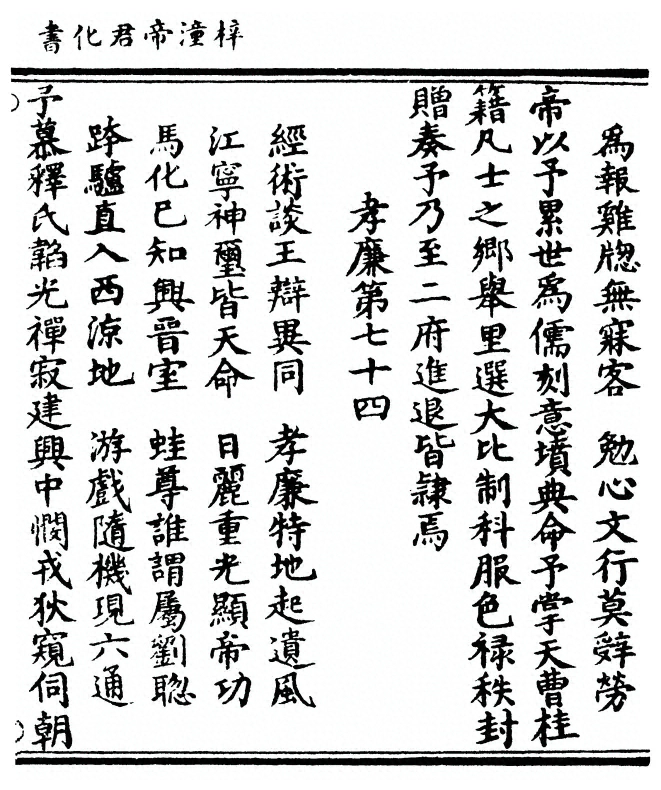 梓潼帝君化書
爲報雞牕無寐客　勉心文行莫辤勞
帝以予累世爲儒刻意墳典命予掌天曹桂
籍凡士之鄉舉里選大比制科服色祿秩封
贈奏予乃至二府進退皆隷焉
孝廉第七十四
經術談王辯異同　孝廉特地起遺風
江寧神璽皆天命　日麗重光顯帝功
馬化已知興晉室　蛙尊誰謂屬劉聦
跨驢直入西涼地　游戲隨機現六通
予慕釋氏韜光禪寂建興中憫戎狄窺伺朝